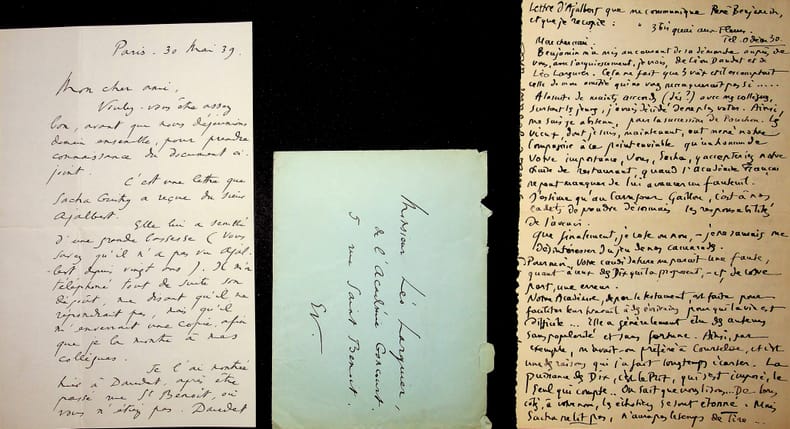 Paris. 30 Mai 39.
Mon cher ami,
Voulez-vous être assez
bon, avant que nous déjeunions
demain ensemble, pour prendre
connaissance du document ci-
joint.
C'est une lettre que
Sacha Guitry a reçue du sieur
Ajalbert.
Elle lui a semblé
d'une grande bassesse (Vous
savez qu'il n'a pas vu Ajal-
bert depuis vingt ans). Il m'a
téléphoné tout de suite son
dégoût, me disant qu'il ne
répondrait pas, mais qu'il
m'enverrait une copie, afin
que je la montre à mes
collègues.
Je l'ai montrée
hier à Daudet, après être
passé rue St Benoît, où
vous n'étiez pas. Daudet
Monsieur Léo Larguier,
de l'Académie Goncourt.
5 rue Saint Benoit.
EV
Lettre d'Ajalbert que me communique René Benjamin,
et que je recopie : 3 bis quai aux Fleurs.
Tel. Odéon 30.
Mon cher ami.
Benjamin m'a mis au courant de sa démarche auprès de
vous, avec l'acquiescement, je vois, de Léon Daudet et de
Léo Larguier. Cela ne fait que 3 voix et il escomptait
celle de mon amitié qui ne vous manquerait pas si .....
A la suite de maints accords (dés?) avec mes collègues,
surtout les jeunes, j'avais décidé de ne plus voter. Ainsi,
me suis-je abstenu, pour la succession de Pouchon. Les
vieux, dont je suis, maintenant, ont mené notre
Compagnie à ce point enviable qu'un homme de
votre importance, vous, Sacha, y accepteriez notre
chaise de restaurant, quand l'académie Française
ne peut manquer de lui avancer un fauteuil.
J'estime qu'au Carrefour Gaillon, c'est à nos
cadets de prendre désormais les responsabilités
de l'avenir.
Que finalement, je vote ou non, - je ne saurais me
désintéresser du jeu de nos camarades.
Pour moi, votre candidature me paraît une faute,
quant à ceux des Dix qui la proposent, - et, de votre
part, une erreur.
Notre Académie, de par le testament, est faite pour
faciliter leur travail à des écrivains pour qui la vie est
difficile ... Elle a généralement élu des auteurs
sans popularité et sans fortune. Ainsi, par
exemple, Mirbeau on préféra à Courteline, et c'est
une des raisons qui l'a fait longtemps écarter. La
puissance des Dix, c'est le Prix, qui s'est imposé, le
seul qui compte.. On sait que vous lisons... De tous
côtés, à votre nom, les échotiers se sont étonnés. Mais
Sacha ne lit pas, n'aura pas le temps de lire ...